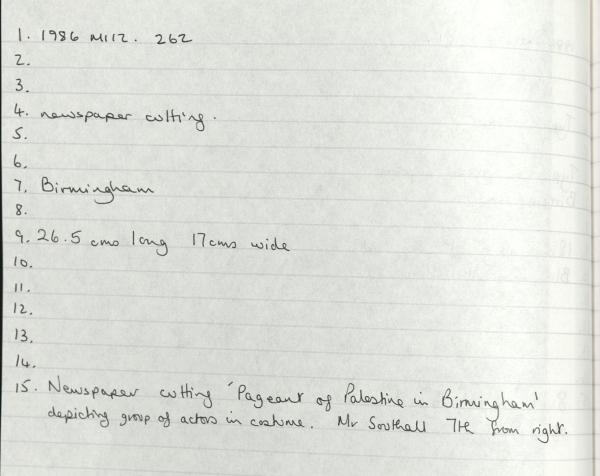 1. 1986 M112. 262
2.
3.
4. newspaper cutting.
5.
6.
7. Birmingham
8.
9. 26.5 cms long 17cms wide
10.
11.
12.
13.
14.
15. Newspaper cutting 'Pageant of Palestine in Birmingham'
depicting group of actors in costume. Mr Southall 7th from right.